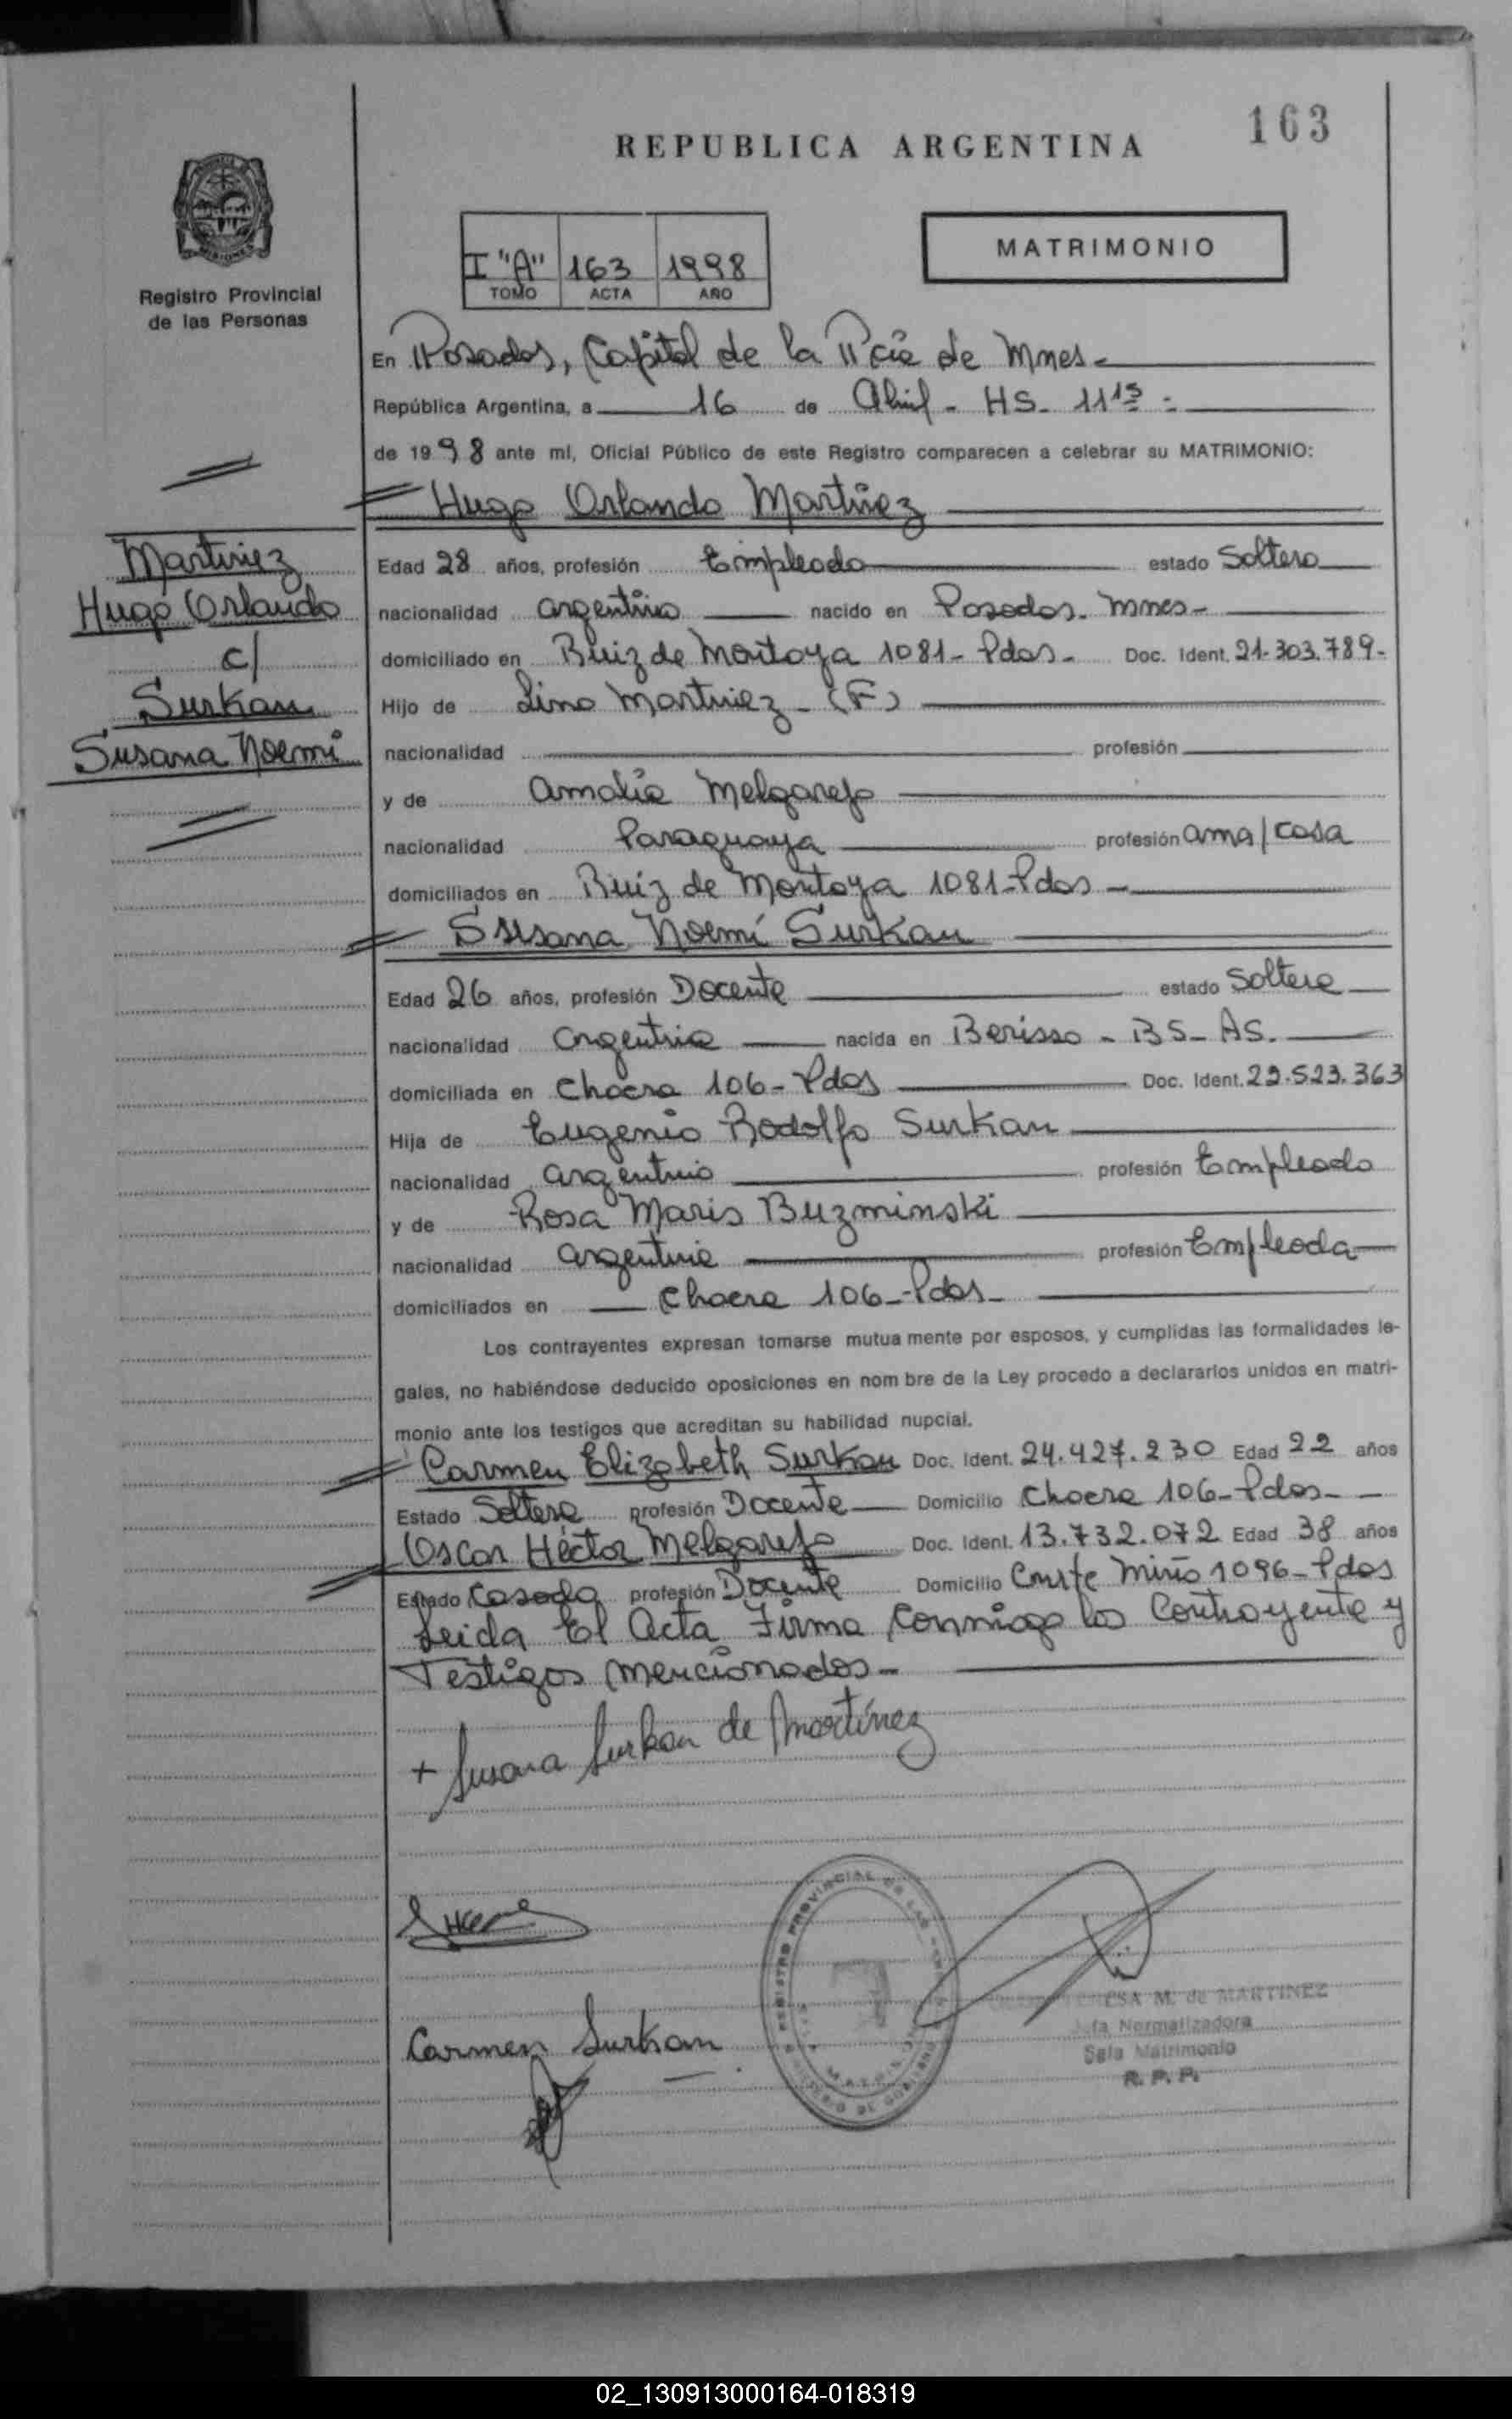 163
REPUBLICA ARGENTINA
I "A" 163 1998
TOMO ACTA AÑO
MATRIMONIO
Registro Provincial
de las Personas
En Posadas, Capital de la Pcia de Mnes.
República Argentina, a 16 de Abril - HS. 11 15
de 1998 ante mí, Oficial Público de este Registro comparecen a celebrar su MATRIMONIO:
Hugo Orlando Martinez
Martinez
Hugo Orlando
c/
Surkan
Susana Noemi
Edad 28 años, profesión Empleado estado Soltero
nacionalidad argentino nacido en Posadas. Mnes-
domiciliado en Ruiz de Montoya 1081- Pdas- Doc. Ident. 21.303.789-
Hijo de Lino Martinez - (F)
nacionalidad profesión
y de Amalia Melgarejo
nacionalidad Paraguaya profesión ama/casa
domiciliados en Ruiz de Montoya 1081-Pdas-
Susana Noemí Surkan
Edad 26 años, profesión Docente estado Soltera
nacionalidad argentina nacida en Berisso - BS- AS.
domiciliada en Chacra 106- Pdas Doc. Ident. 22.523.363
Hija de Eugenio Rodolfo Surkan
nacionalidad argentino profesión Empleado
y de Rosa Maris Buzminski
nacionalidad argentina profesión Empleada
domiciliados en Chacra 106-Pdas-
Los contrayentes expresan tomarse mutua mente por esposos, y cumplidas las formalidades le-
gales, no habiéndose deducido oposiciones en nom bre de la Ley procedo a declararlos unidos en matri-
monio ante los testigos que acreditan su habilidad nupcial.
Carmen Elizabeth Surkan Doc. Ident. 24.427.230 Edad 22 años
Estado Soltera profesión Docente Domicilio Chacra 106-Pdas-
Oscar Héctor Melgarejo Doc. Ident. 13.732.072 Edad 38 años
Estado Casado profesión Docente Domicilio Miño 1096-Pdas
Leida El Acta Firma Conmigo los Contrayente y
Testigos mencionados-
+ Susana Surkan de Martínez
Carmen Surkan
REGISTRO PROVINCIAL DE LAS
M. de MARTINEZ
Jefa Normalizadora
Sala Matrimonio
R. P. P.
02_130913000164-018319